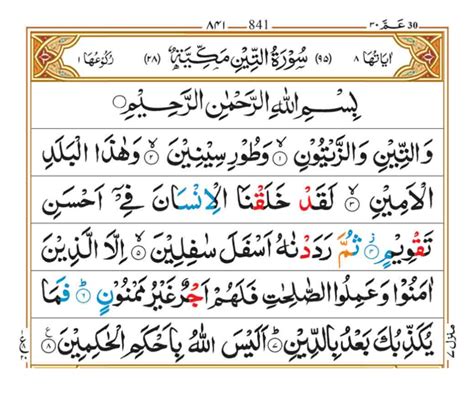 30 عـمّ ٣٠ 841 ٨٤١
اٰيَاتُهَا ٨ (٩٥) سُوْرَةُ التِّيْنِ مَكِّيَّةٌ (٢٨) رُكُوْعُهَا ١
بِسْمِ اللهِ الرَّحْمٰنِ الرَّحِيْمِ
وَالتِّيْنِ وَالزَّيْتُوْنِ ۙ﴿١﴾ وَطُوْرِ سِيْنِيْنَ ۙ﴿٢﴾ وَهٰذَا الْبَلَدِ
الْاَمِيْنِ ۙ﴿٣﴾ لَقَدْ خَلَقْنَا الْاِنْسَانَ فِيْۤ اَحْسَنِ
تَقْوِيْمٍ ۫﴿٤﴾ ثُمَّ رَدَدْنٰهُ اَسْفَلَ سٰفِلِيْنَ ۙ﴿٥﴾ اِلَّا الَّذِيْنَ
اٰمَنُوْا وَعَمِلُوا الصّٰلِحٰتِ فَلَهُمْ اَجْرٌ غَيْرُ مَمْنُوْنٍ ؕ﴿٦﴾ فَمَا
يُكَذِّبُكَ بَعْدُ بِالدِّيْنِ ؕ﴿٧﴾ اَلَيْسَ اللهُ بِاَحْكَمِ الْحٰكِمِيْنَ ﴿٨﴾ ع
منزل ٧